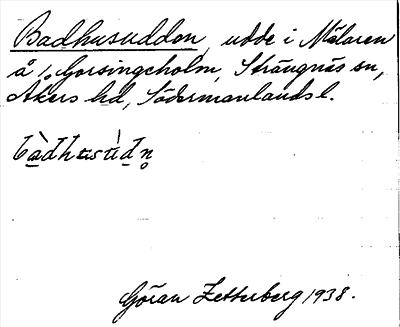 Badhusuddon, udde i Mälaren
å Gorsingeholm, Strängnäs sn,
Åkers hd, Södermanlands l.
Göran Zetterberg 1938.